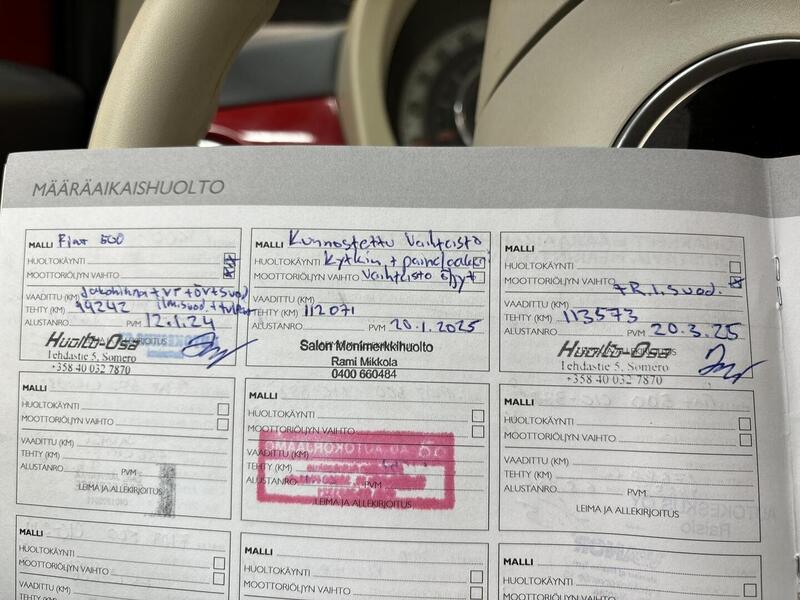 MÄÄRÄAIKAISHUOLTO
MALLI Fiat 500
HUOLTOKÄYNTI
MOOTTORIÖLJYN VAIHTO
VAADITTU (KM) Jakohihna + VP + ÖV + Suod
ilm.suod.
TEHTY (KM) 99242
ALUSTANRO PVM 12.1.24
Huolto-Osa
Iehdastie 5, Somero
+358 40 032 7870
MALLI Kunnostettu Vaihteisto
HUOLTOKÄYNTI Kytkin + paine
MOOTTORIÖLJYN VAIHTO Vaihteisto Öljyt
VAADITTU (KM)
TEHTY (KM) 112071
ALUSTANRO PVM 20.1.2025
Salon Monimerkkihuolto
Rami Mikkola
0400 660484
MALLI
HUOLTOKÄYNTI
MOOTTORIÖLJYN VAIHTO
+R.I.Suod.
VAADITTU (KM)
TEHTY (KM) 113573
ALUSTANRO PVM 20.3.25
Huolto-Osa
Iehdastie 5, Somero
+358 40 032 7870
MALLI
HUOLTOKÄYNTI
MOOTTORIÖLJYN VAIHTO
VAADITTU (KM)
TEHTY (KM)
ALUSTANRO PVM
LEIMA JA ALLEKIRJOITUS
MALLI
HUOLTOKÄYNTI
MOOTTORIÖLJYN VAIHTO
VAADITTU (KM)
TEHTY (KM)
ALUSTANRO PVM
LEIMA JA ALLEKIRJOITUS
MALLI
HUOLTOKÄYNTI
MOOTTORIÖLJYN VAIHTO
VAADITTU (KM)
TEHTY (KM)
ALUSTANRO PVM
LEIMA JA ALLEKIRJOITUS
MALLI
HUOLTOKÄYNTI
MOOTTORIÖLJYN VAIHTO
VAADITTU (KM)
MALLI
HUOLTOKÄYNTI
MOOTTORIÖLJYN VAIHTO
MALLI
HUOLTOKÄYNTI
MOOTTORIÖLJYN VAIHTO